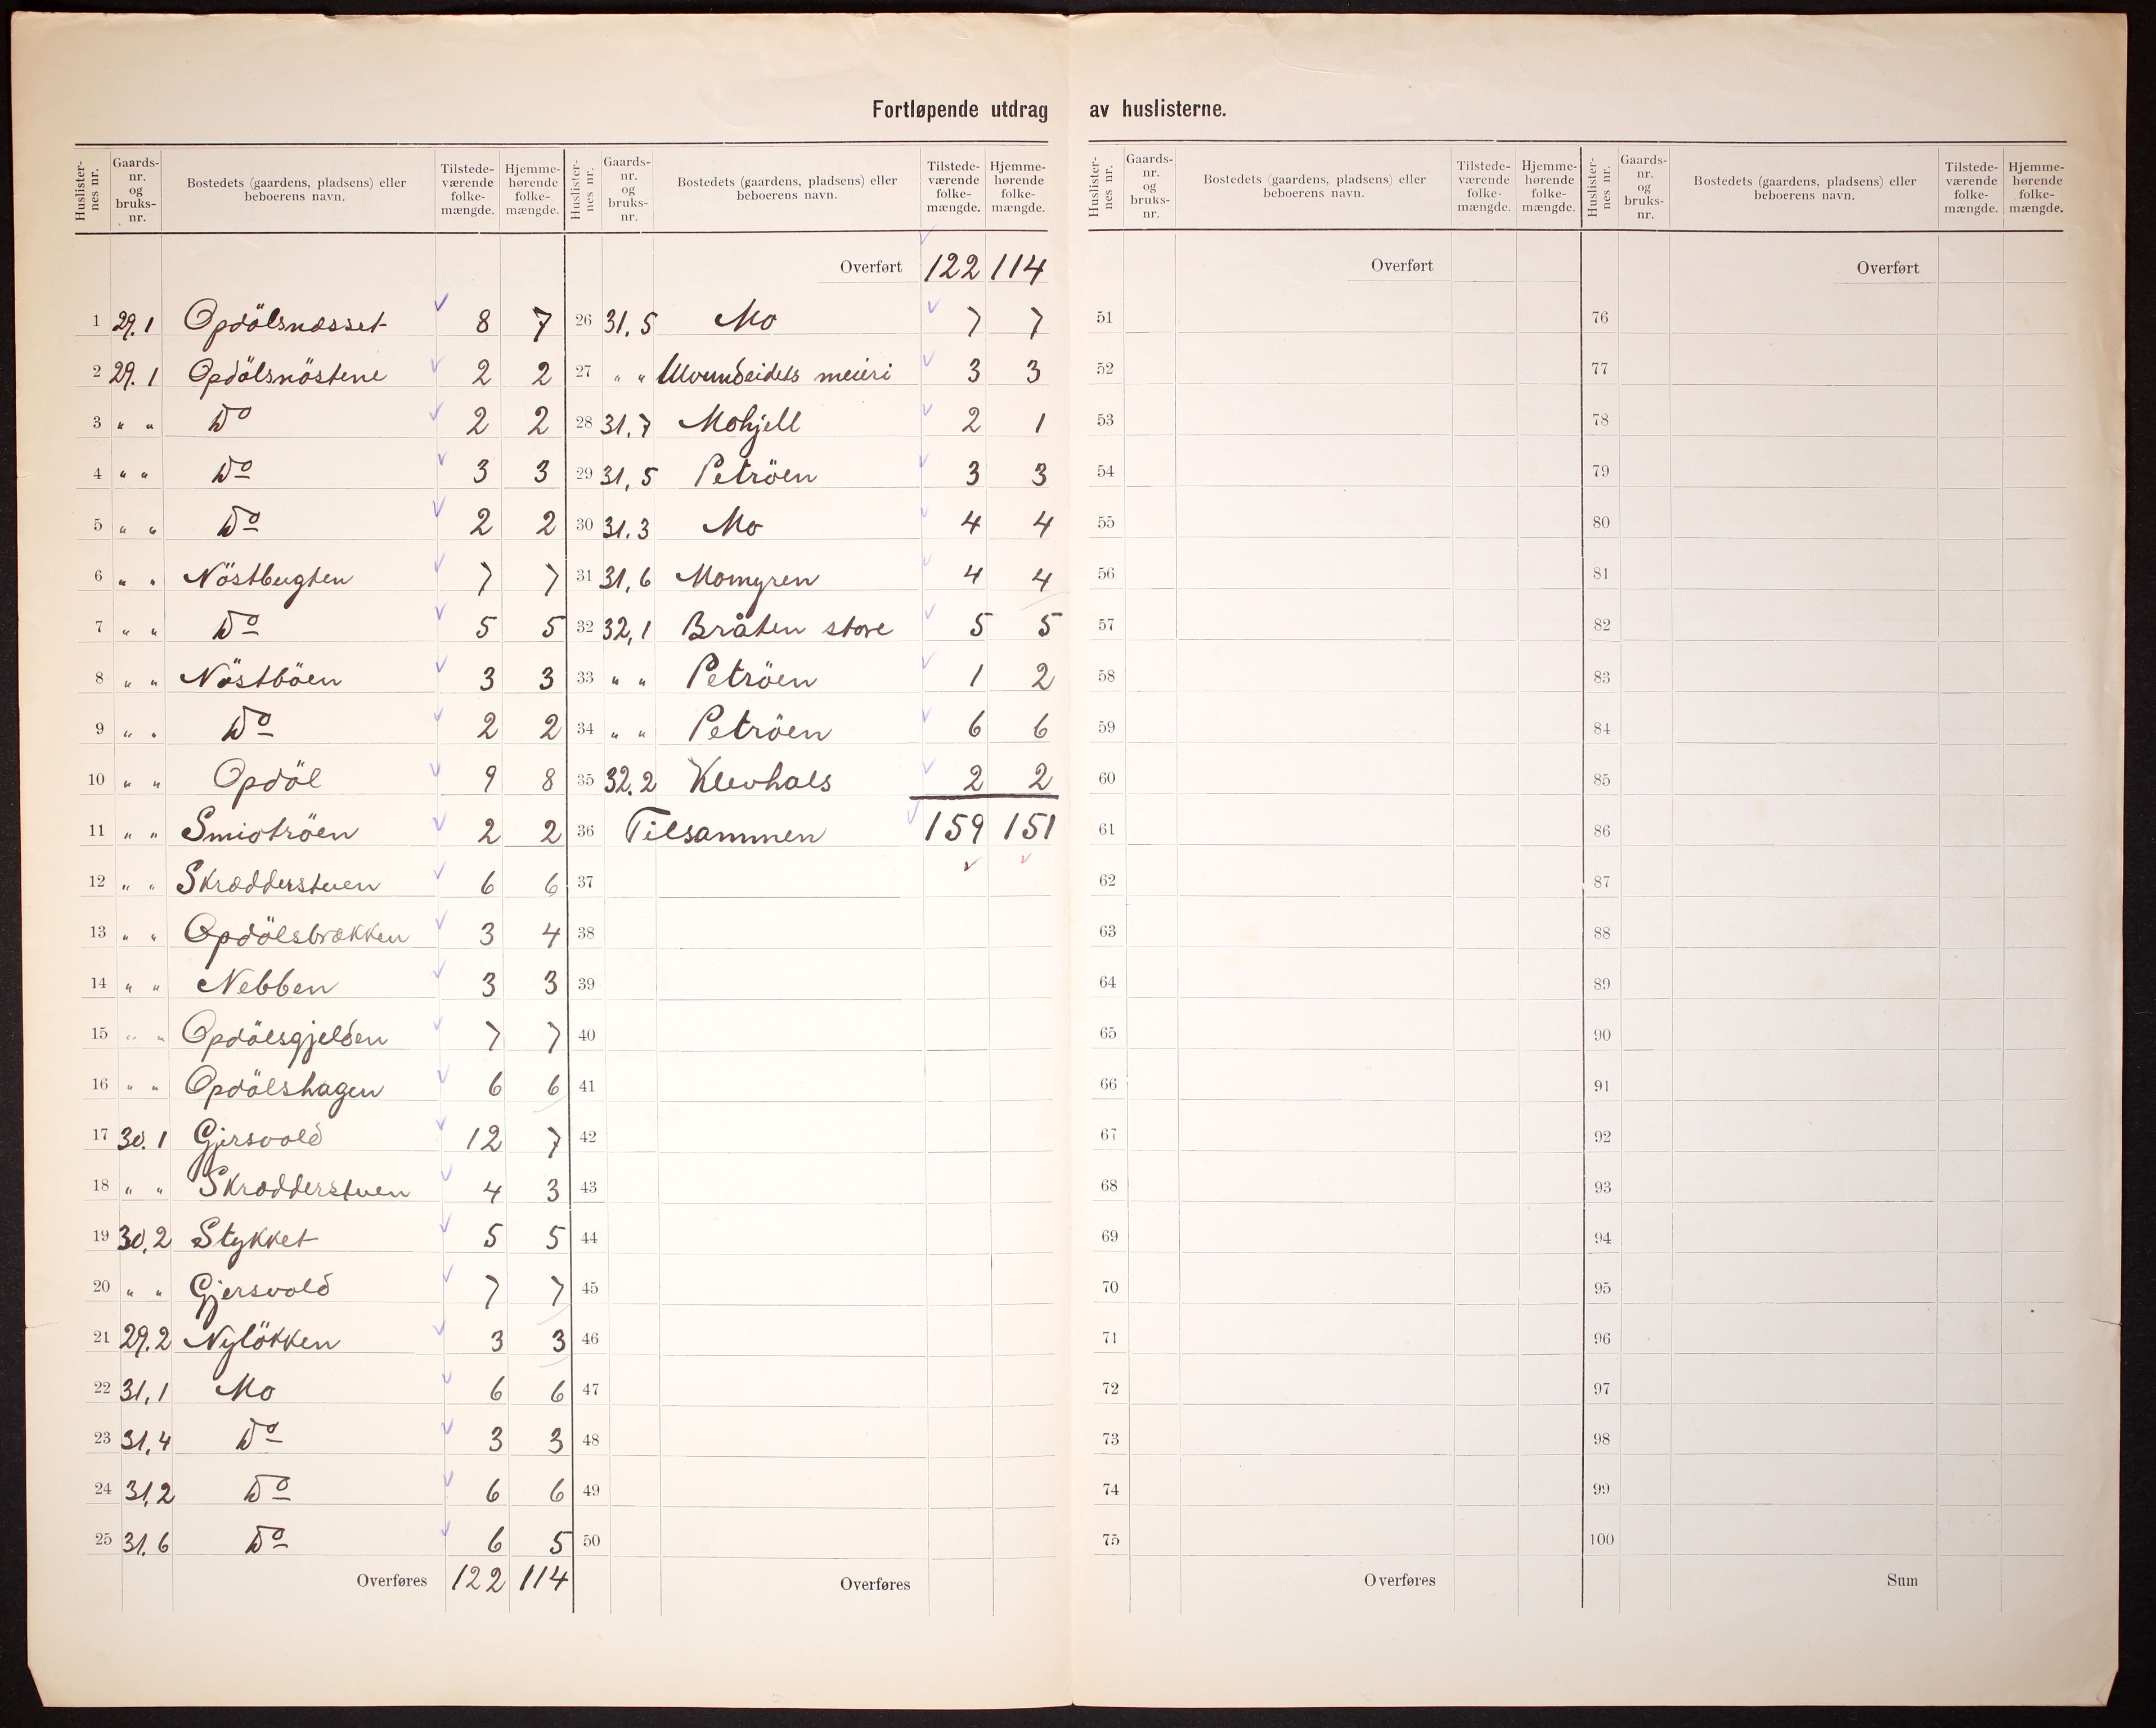 Fortløpende utdrag av huslisterne.
Huslister-nes nr. Gaards-nr. og bruks-nr. Bostedets (gaardens, pladsens) eller beboerens navn. Tilstede-værende folke-mængde. Hjemme-hørende folke-mængde.
1 29.1 Opdölsnæsset 8 7
2 29.1 Opdölsnöstene 2 2
3 " " Do 2 2
4 " " Do 3 3
5 " " Do 2 2
6 " " Nöstbugten 7 7
7 " " Do 5 5
8 " " Nöstböen 3 3
9 " " Do 2 2
10 " " Opdöl 9 8
11 " " Smidtröen 2 2
12 " " Skrædderstuen 6 6
13 " " Opdölsbrækken 3 4
14 " " Nebben 3 3
15 " " Opdölsgjelden 7 7
16 " " Opdölshagen 6 6
17 30.1 Gjersvold 12 7
18 " " Skrædderstuen 4 3
19 30,2 Stykket 5 5
20 " " Gjersvold 7 7
21 29.2 Nylökken 3 3
22 31,1 Mo 6 6
23 31,4 Do 3 3
24 31,2 Do 6 6
25 31.6 Do 6 5
Overføres 122 114
Huslister-nes nr. Gaards-nr. og bruks-nr. Bostedets (gaardens, pladsens) eller beboerens navn. Tilstede-værende folke-mængde. Hjemme-hørende folke-mængde.
Overført 122 114
26 31,5 Mo 7 7
27 " " Ulvundeidets meieri 3 3
28 31,7 Mohjell 2 1
29 31,5 Petröen 3 3
30 31.3 Mo 4 4
31 31,6 Momyren 4 4
32 32,1 Bråten store 5 5
33 " " Petröen 1 2
34 " " Petröen 6 6
35 32.2 Klevhals 2 2
36 Tilsammen 159 151
37
38
39
40
41
42
43
44
45
46
47
48
49
50
Overføres
Huslister-nes nr. Gaards-nr. og bruks-nr. Bostedets (gaardens, pladsens) eller beboerens navn. Tilstede-værende folke-mængde. Hjemme-hørende folke-mængde.
Overført
51
52
53
54
55
56
57
58
59
60
61
62
63
64
65
66
67
68
69
70
71
72
73
74
75
Overføres
Huslister-nes nr. Gaards-nr. og bruks-nr. Bostedets (gaardens, pladsens) eller beboerens navn. Tilstede-værende folke-mængde. Hjemme-hørende folke-mængde.
Overført
76
77
78
79
80
81
82
83
84
85
86
87
88
89
90
91
92
93
94
95
96
97
98
99
100
Sum